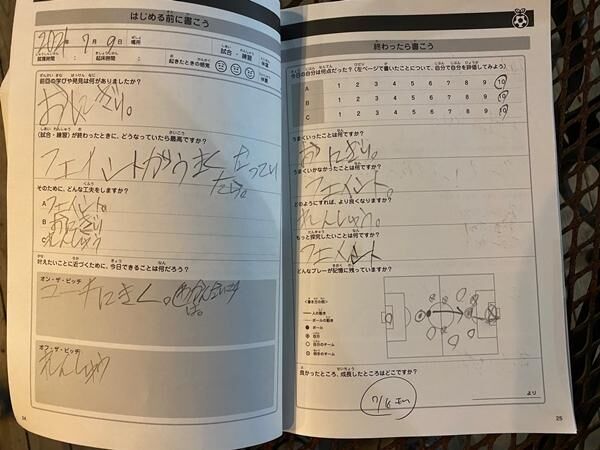 はじめる前に書こう
2021年 7月 9日 場所
就寝時間 起床時間 起きたときの感覚 試合・練習 体重
前回の学びや発見は何がありましたか?
おにぎり。
(試合・練習)が終わったときに、どうなっていたら最高ですか?
フェイントがうまくなってい
たら。
そのために、どんな工夫をしますか?
A フェイント。
B おにぎり
れんしゅう
叶えたいことに近づくために、今日できることは何だろう?
オン・ザ・ピッチ
コーチにきく。
オフ・ザ・ピッチ
れんしゅう
14
終わったら書こう
今日の自分は何点だった?(左ページで書いたことについて、自分で自分を評価してみよう)
A 1 2 3 4 5 6 7 8 9 10
B 1 2 3 4 5 6 7 8 9 10
C 1 2 3 4 5 6 7 8 9 10
うまくいったことは何ですか?
おにぎり。
うまくいかなかったことは何ですか?
フェイント。
どのようにすれば、より良くなりますか?
れんしゅう。
もっと探究したいことは何ですか?
フェイント
どんなプレーが記憶に残っていますか?
<書き方の例>
人の動き
ボールの動き
ボール
自分
自分のチーム
相手のチーム
良かったところ、成長したところはどこですか?
より
25